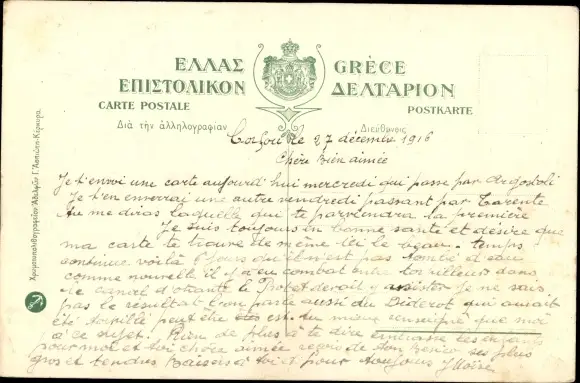 ΕΛΛΑΣ GRÈCE
ΕΠΙΣΤΟΛΙΚΟΝ ΔΕΛΤΑΡΙΟΝ
CARTE POSTALE POSTKARTE
Διὰ τὴν ἀλληλογραφίαν Διεύθυνσις
Corfou le 27 décembre 1916
Chère Bien aimée
Je t'envoi une carte aujourdi hui mercredi qui passe par Argostoli
Je t'en enverrai une autre vendredi passant par Tarente
tu me diras laquelle qui te parviendra la première
Je suis toujours en bonne santé et désire que
ma carte te trouve de même ici le beau temps
continue voilà 6 jours qu'il n'est pas tombé d'eau
comme nouvelle il y a eu combat entre torpilleurs dans
le canal d'otrante le devait y assister Je ne sais
pas le résultat l'on parle aussi du Diderot qui aurait
été torpillé peut être est tu mieux renseigné que moi
à ce sujet. Rien de plus à te dire embrasse les enfants
pour moi et toi chère aimée reçois de ton ses plus
gros et tendres Baisers à toi et pour toujours
Χρωμοτυπολιθογραφεῖον Ἀδελφῶν Γ. Ἀσπιώτη-Κέρκυρα.